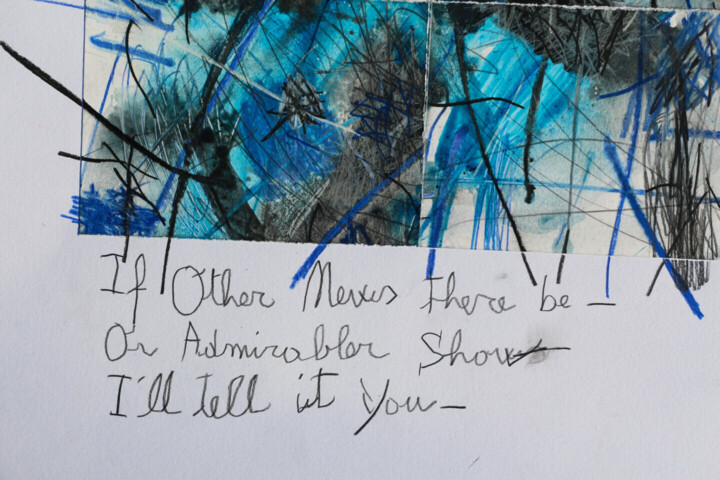 If Other News there be —
Or Admirabler Show —
I'll tell it You —